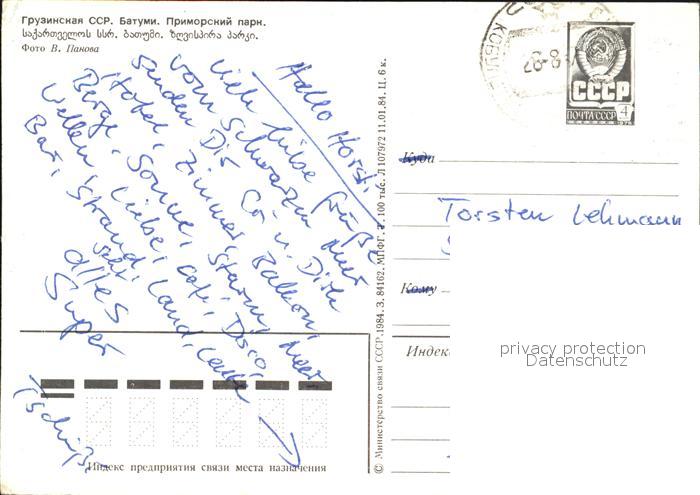 Грузинская ССР. Батуми. Приморский парк.
საქართველოს სსრ. ბათუმი. ზღვისპირა პარკი.
Фото В. Панова
Hallo Horst,
viele liebe Grüße
vom Schwarzen Meer
senden Dir Co u. Dirk
Hotel, Zimmer, Balkon,
Berge, Sonne, Strand, Meer
Wellen, Liebe, Café, Disco,
Bar, Strand, Land, Leute
alles
Super
Tschüß
Индекс предприятия связи места назначения
© Министерство связи СССР. 1984. З. 84162. МПФГ. Т. 100 тыс. Л 107972 11.01.84. Ц. 6 к.
СССР
ПОЧТА СССР 4
Куда
Torsten Lehmann
Кому
Индекс
privacy protection
Datenschutz